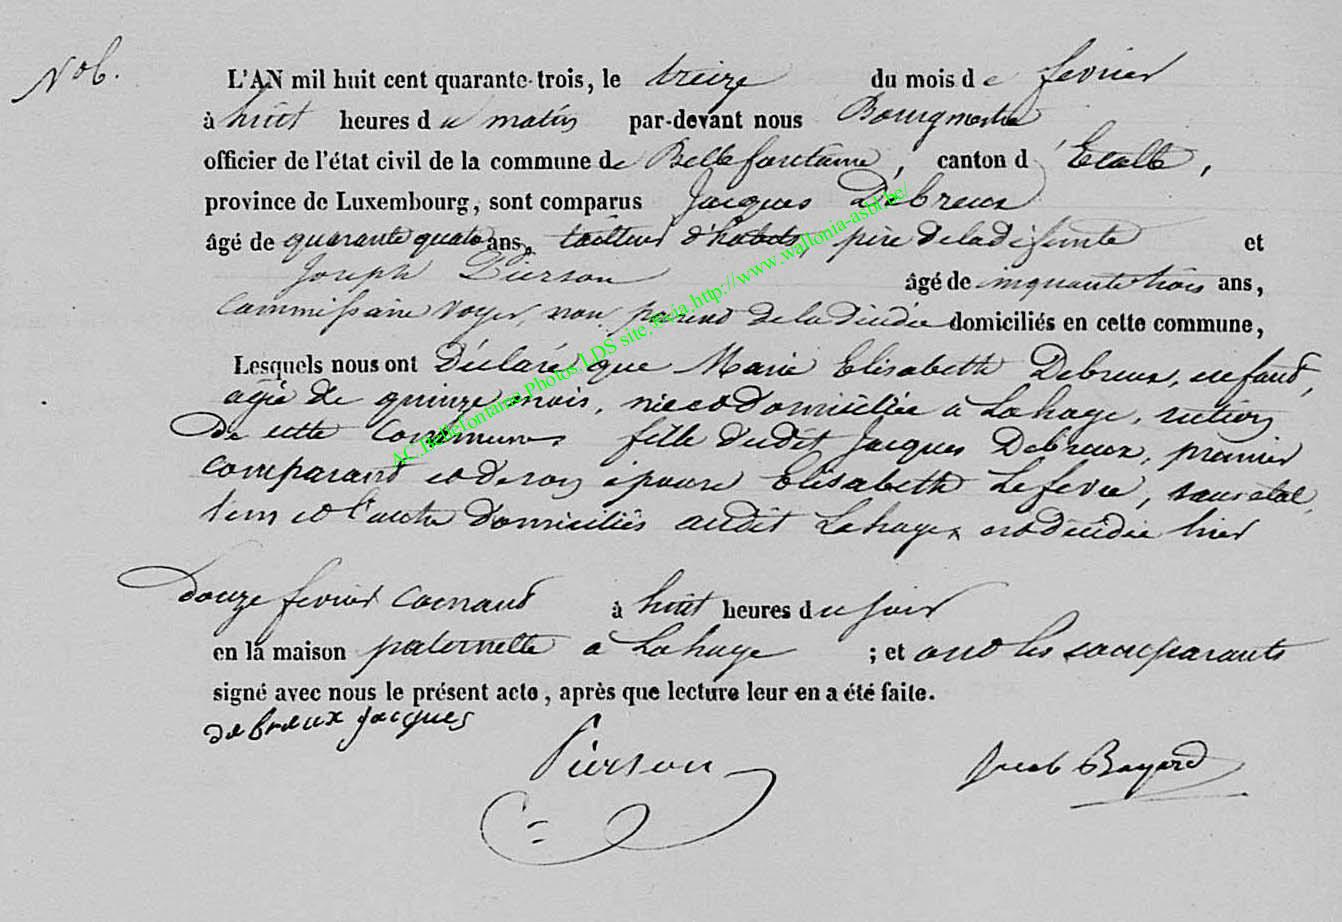 N° 6.
L'AN mil huit cent quarante-trois, le treize du mois de fevrier
à huit heures du matin par-devant nous Bourgmestre
officier de l'état civil de la commune de Bellefontaine, canton d'Etalle,
province de Luxembourg, sont comparus Jacques Debreux
âgé de quarante quatre ans, tailleur d'habits, père de la défunte et
Joseph Pierson âgé de cinquante trois ans,
commissaire voyer, non parent de la décédée domiciliés en cette commune,
Lesquels nous ont déclaré que Marie Elisabeth Debreux, enfant,
agée de quinze mois, née et domiciliée à Lahage, section
de cette commune fille dudit Jacques Debreux, premier
comparant et de son épouse Elisabeth Lefevre, sans état,
l'un et l'autre domiciliés audit Lahage, est décédée hier
douze fevrier courant à huit heures du soir
en la maison paternelle à Lahage ; et ont les comparants
signé avec nous le présent acte, après que lecture leur en a été faite.
debreux jacques
Pierson
Jacob Bayard
AC,Bellefontaine,Photos,LDS site,Maia,http://www.wallonia-asbl.be/